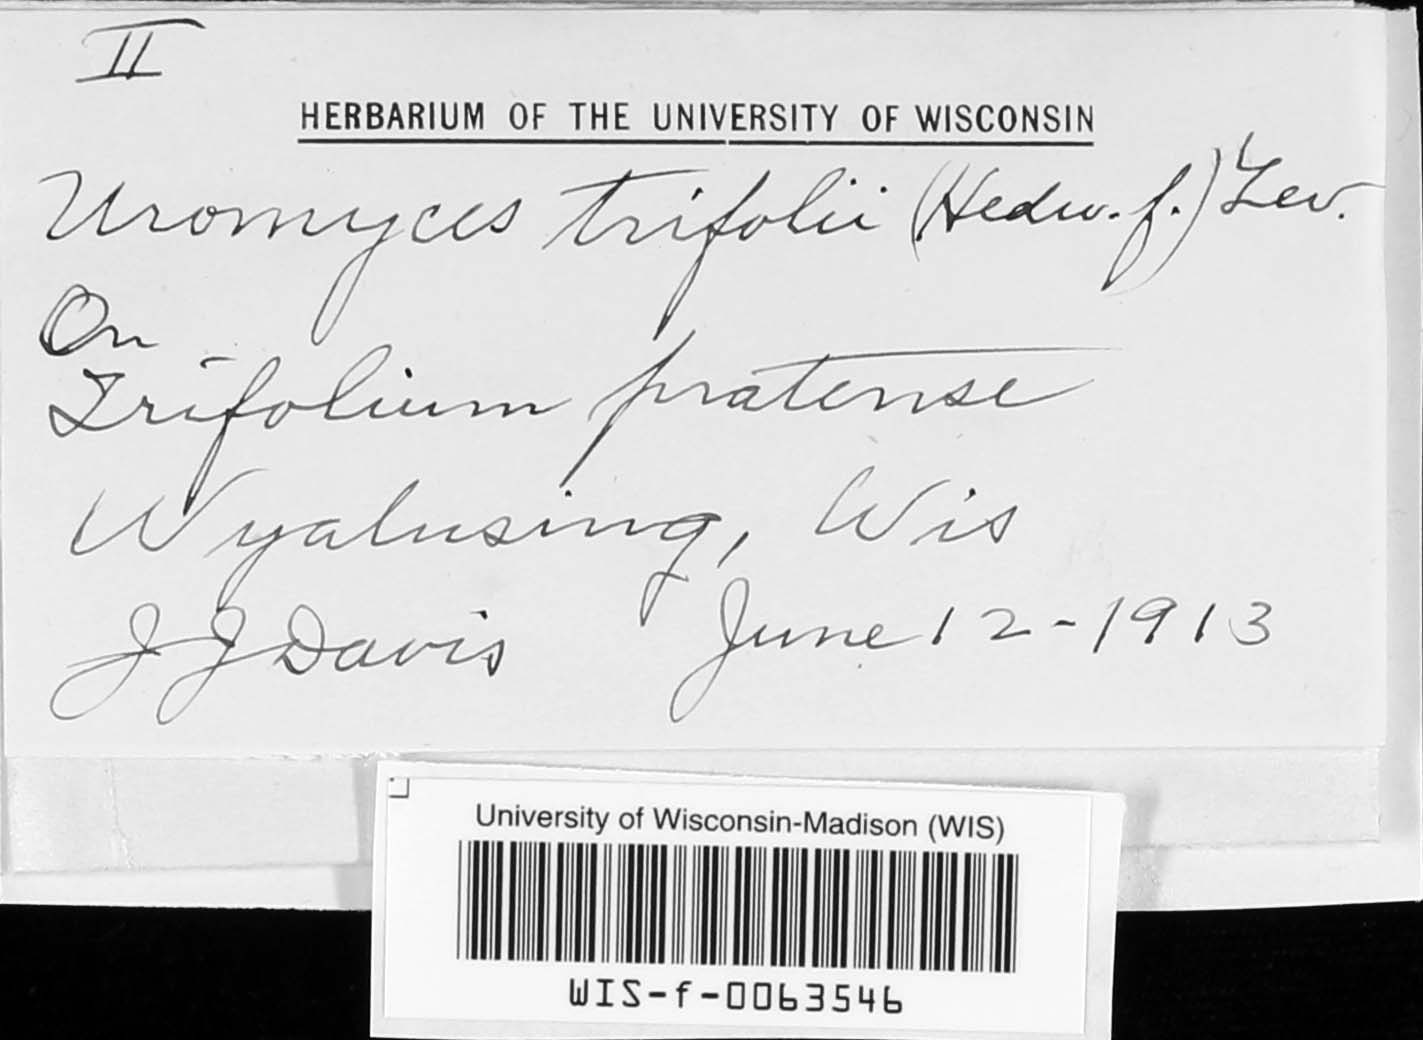 II
HERBARIUM OF THE UNIVERSITY OF WISCONSIN
Uromyces trifolii (Hedw. f.) Lev.
On
Trifolium pratense
Wyalusing, Wis
J J Davis June 12-1913
University of Wisconsin-Madison (WIS)
WIS-f-0063546